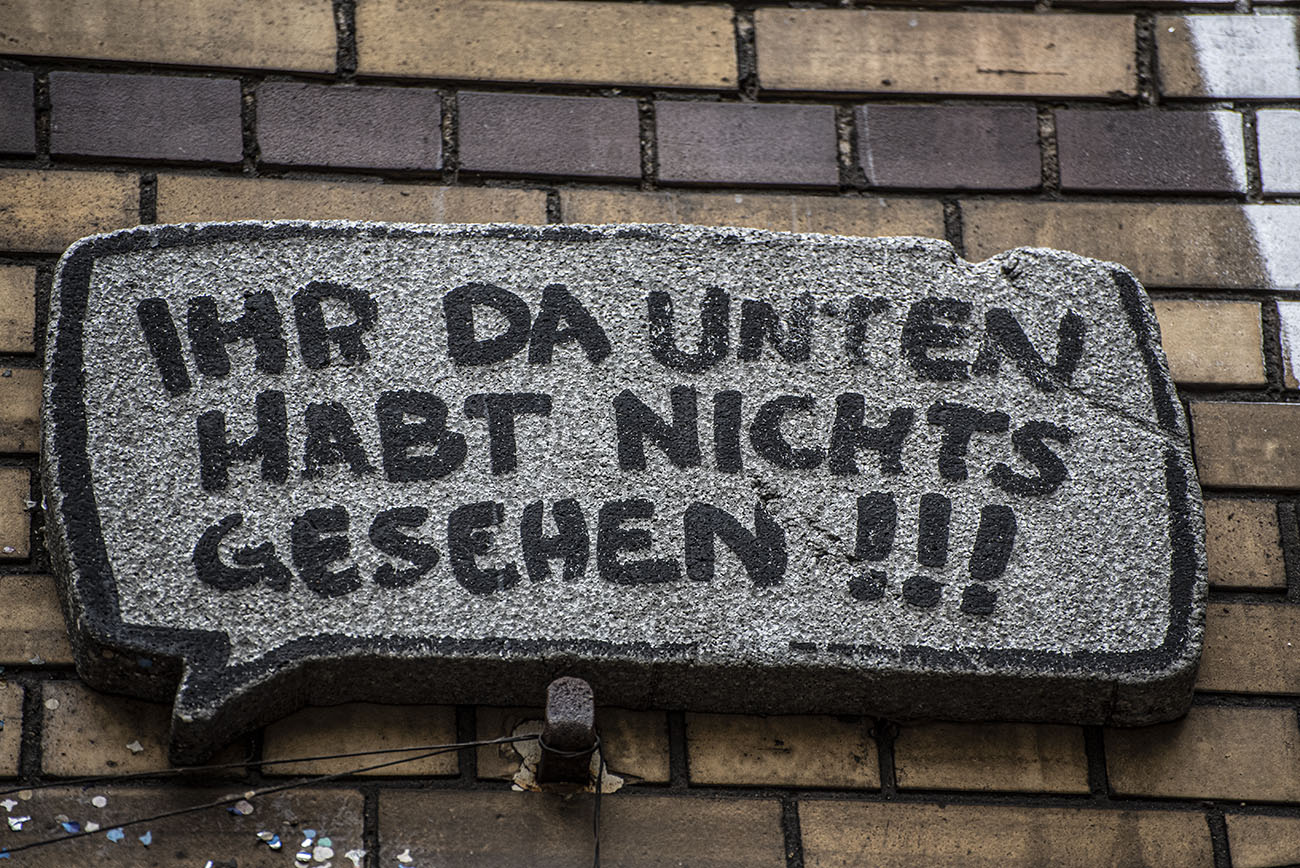 IHR DA UNTEN
HABT NICHTS
GESEHEN !!!